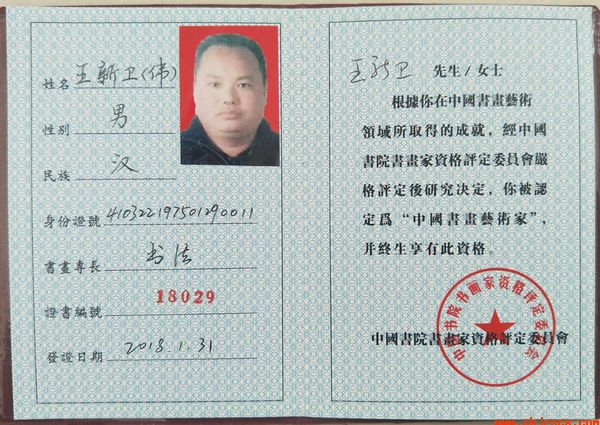 姓名 王新卫(伟)
性别 男
民族 汉
身份證號 410322197501290011
書畫專長 书法
證書編號 18029
發證日期 2018.1.31
王新卫 先生/女士
根據你在中國書畫藝術
領域所取得的成就，經中國
書院書畫家資格評定委員會嚴
格評定後研究決定，你被認
定爲“中國書畫藝術家”，
并終生享有此資格。
中國書院書畫家資格評定委員會
中国书院书画家资格评定委员会